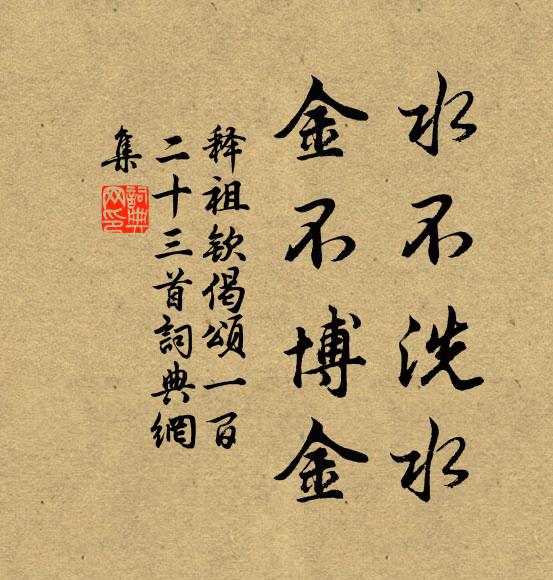 水不洗水
金不博金
释祖钦偈頌一百
二十三首詞典網
集
詞典
网印